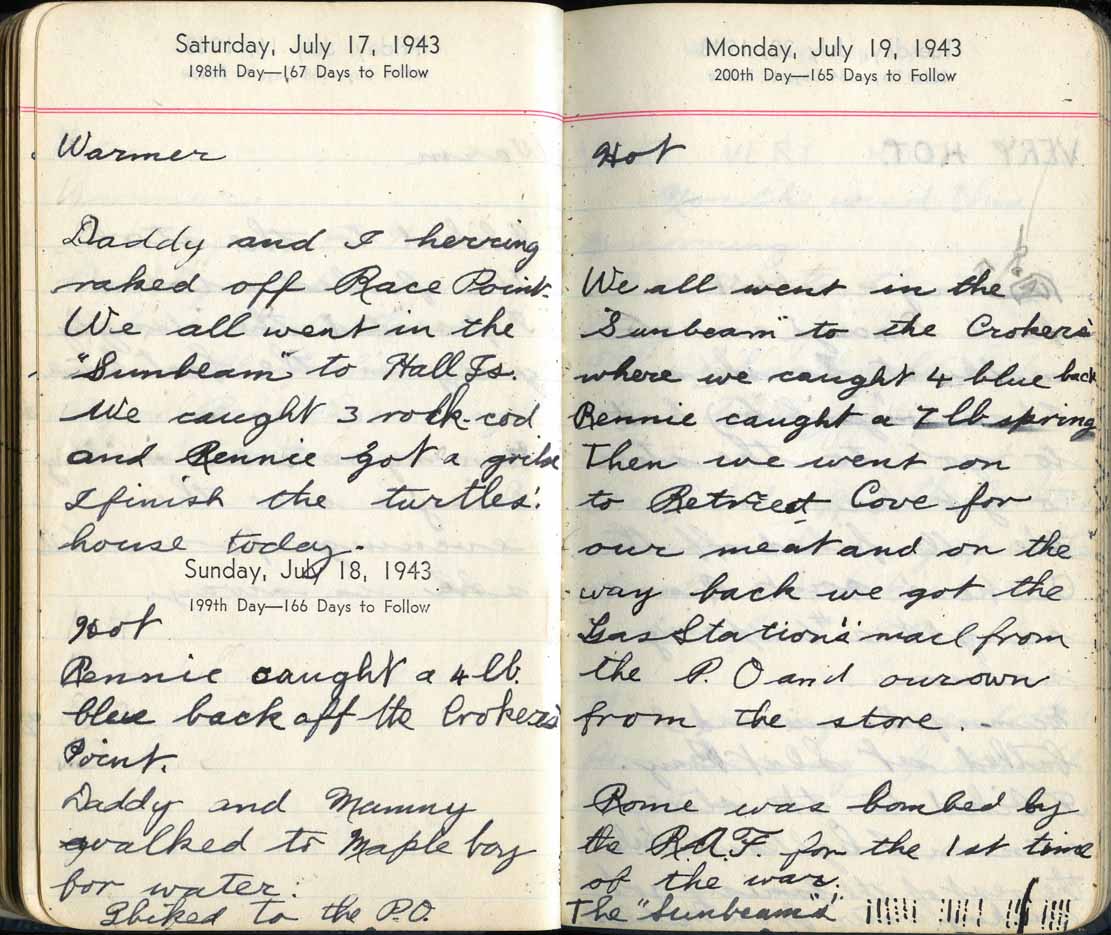 Saturday, July 17, 1943
198th Day—167 Days to Follow
Warmer
Daddy and I herring
raked off Race Point.
We all went in the
"Sunbeam" to Hall Is.
We caught 3 rock-cod
and Rennie got a grilse
I finish the turtles'
house today.
Sunday, July 18, 1943
199th Day—166 Days to Follow
Hot
Rennie caught a 4 lb.
blue back off the Crokers'
Point.
Daddy and Mummy
walked to Maple bay
for water.
I biked to the P.O.
Monday, July 19, 1943
200th Day—165 Days to Follow
Hot
We all went in the
"Sunbeam" to the Crokers'
where we caught 4 blue back
Rennie caught a 7 lb spring
Then we went on
to Retreat Cove for
our meat and on the
way back we got the
Gas Station's mail from
the P.O and our own
from the store.
Rome was bombed by
the R.A.F. for the 1st time
of the war.
The "Sunbeam's"